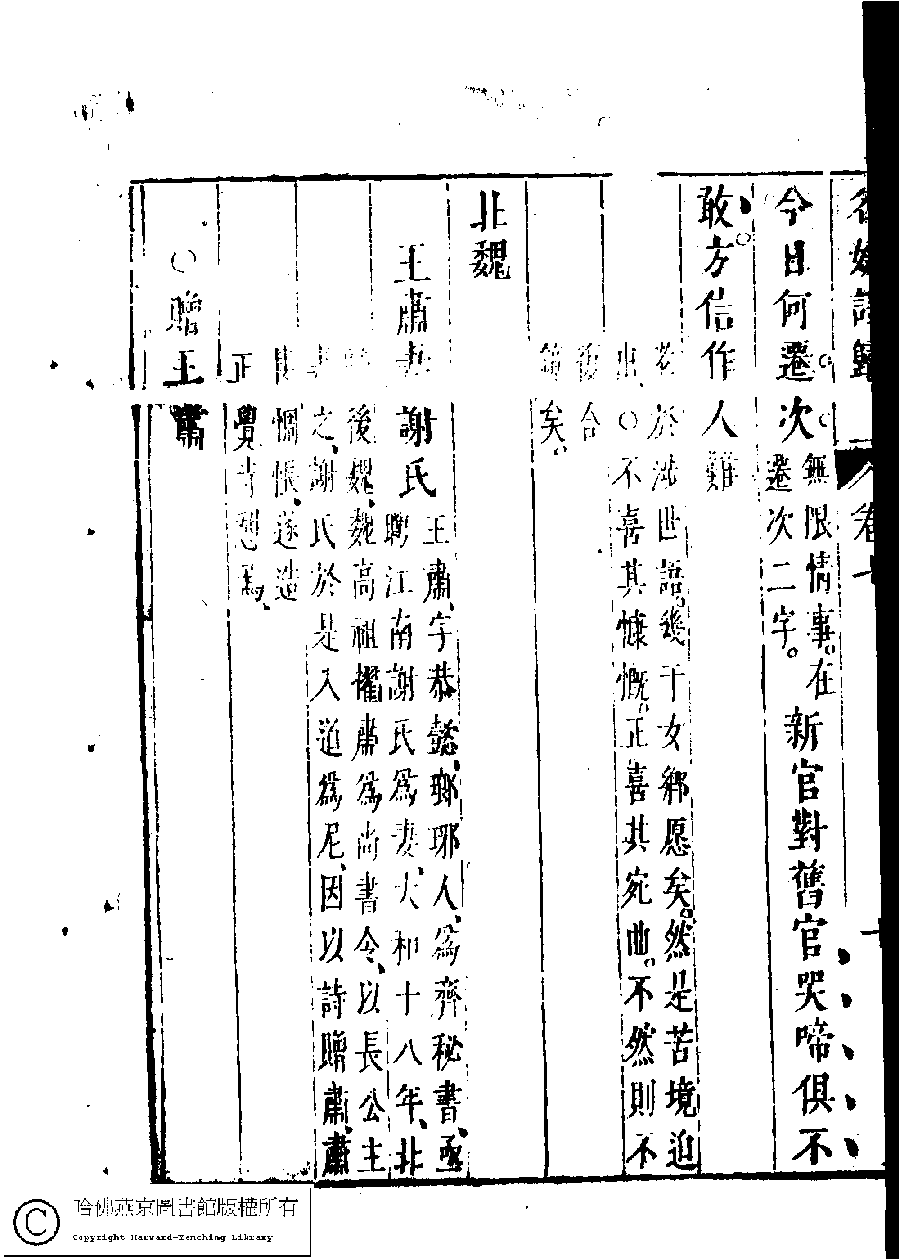 今日何遷次無限情事。在遷次二字。新官對舊官哭啼俱不
敢方信作人難
老於涉世語。幾千女鄉愿矣。然是苦境迫
出。○不喜其慷慨。正喜其宛曲。不然則不
復合
矣。
北魏
王肅妻謝氏
王肅、字恭懿、瑯琊人、爲齊秘書丞、
聘江南謝氏爲妻、太和十八年、北
後魏、魏高祖擢肅爲尚書令、以長公主
妻之、謝氏於是入道爲尼、因以詩贈肅、肅
惆悵、遂造
正覺寺憩焉、
○贈王肅
哈佛燕京圖書館版權所有
Copyright Harvard-Yenching Library